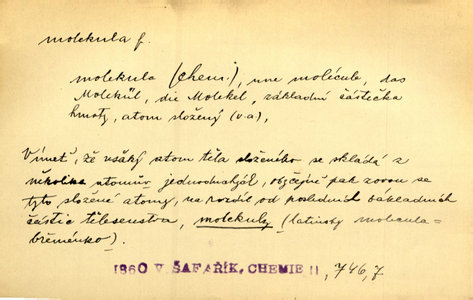 molekula f.
molekula (chem.), une molécule, das
Molekül, die Molekel, základní částička
hmoty, atom složený (v.a),
Vímeť, že všaký atom těla složeného se skládá z
několika atomův jednoduchých, obyčejně pak zovou se
tyto složené atomy, na rozdíl od posledních základních
částic tělesenstva, molekuly (latinsky molecula =
břeménko).
1860 V. ŠAFAŘÍK, CHEMIE II, 746, 7